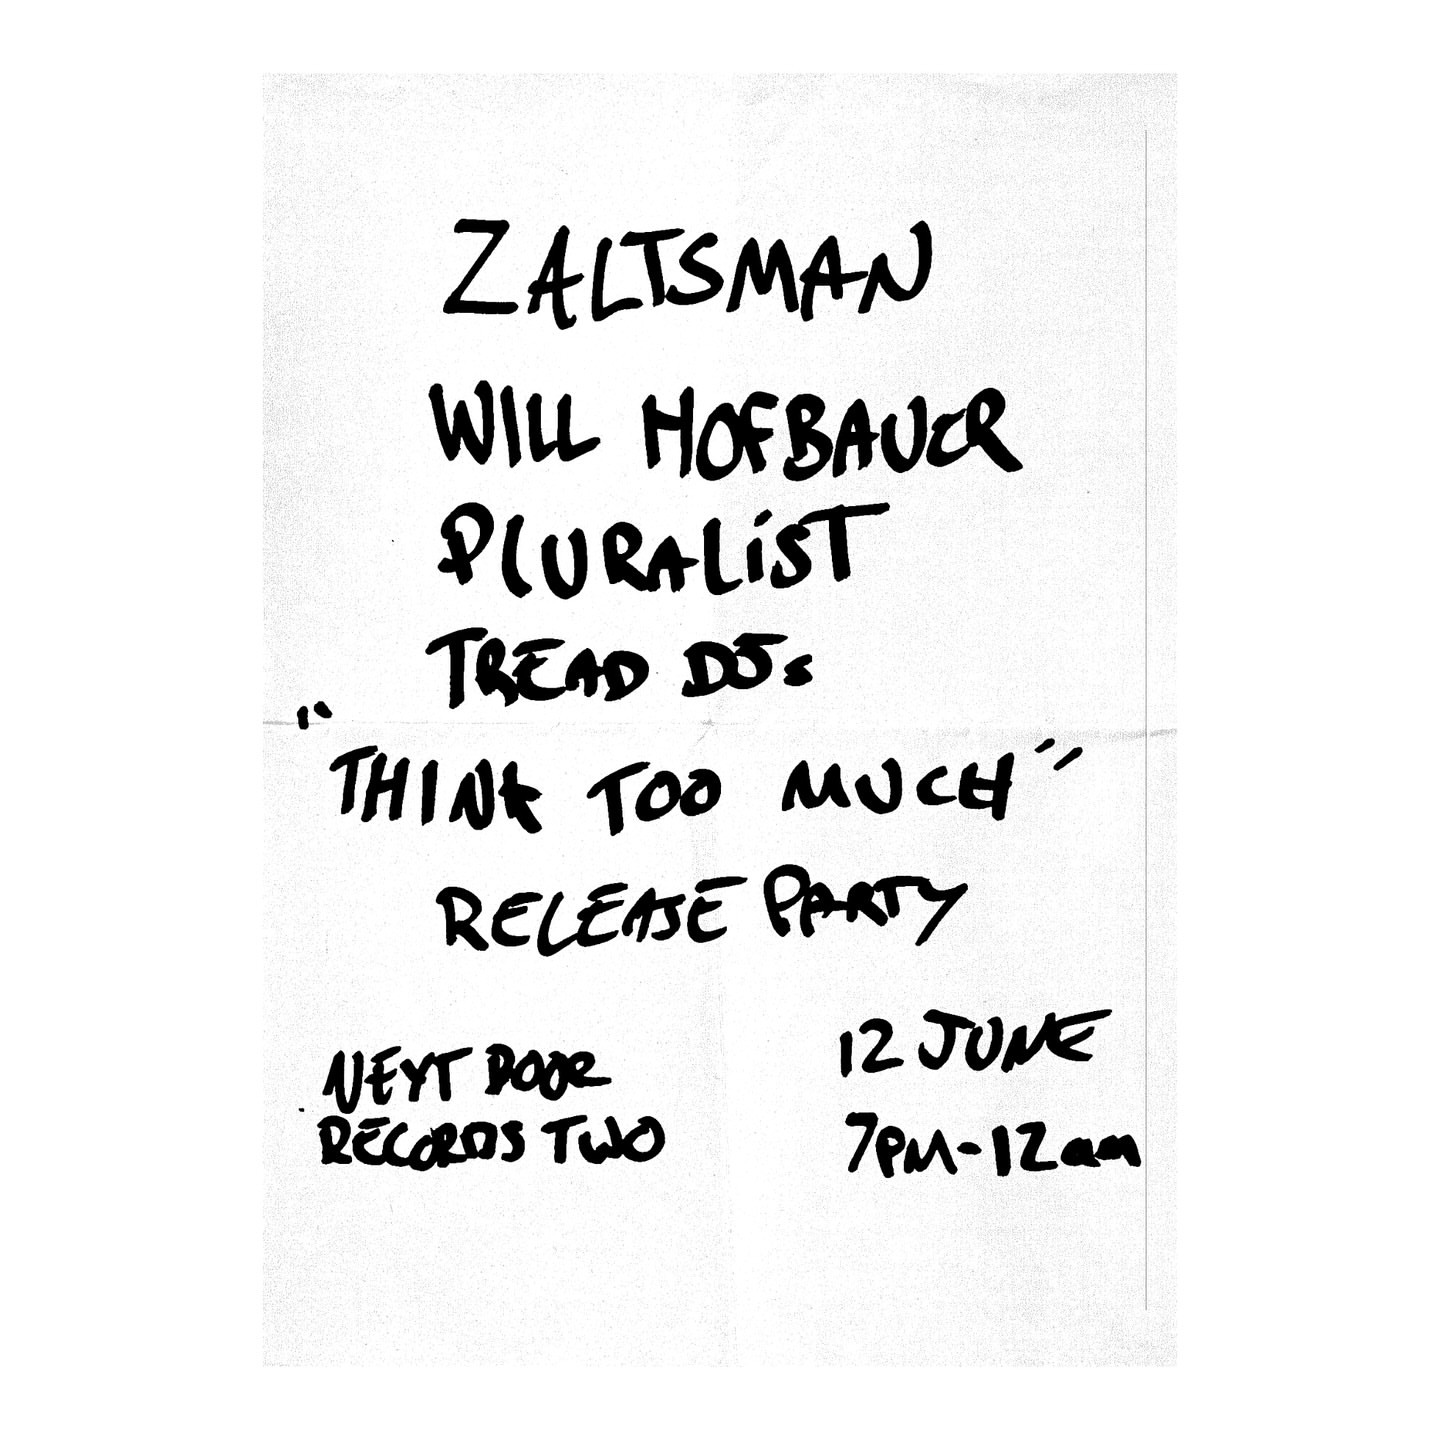 ZALTSMAN
WILL HOFBAUER
PLURALiST
TREAD DJs
"THINK TOO MUCH"
RELEASE PARTY
NEXT DOOR
RECORDS TWO
12 JUNE
7PM-12am